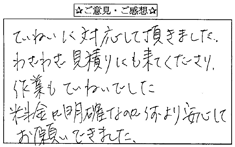 ☆ご意見・ご感想☆
ていねいに対応して頂きました。
わざわざ見積りにも来てくださり、
作業もていねいでした
料金も明確なので何より安心して
お願いできました。